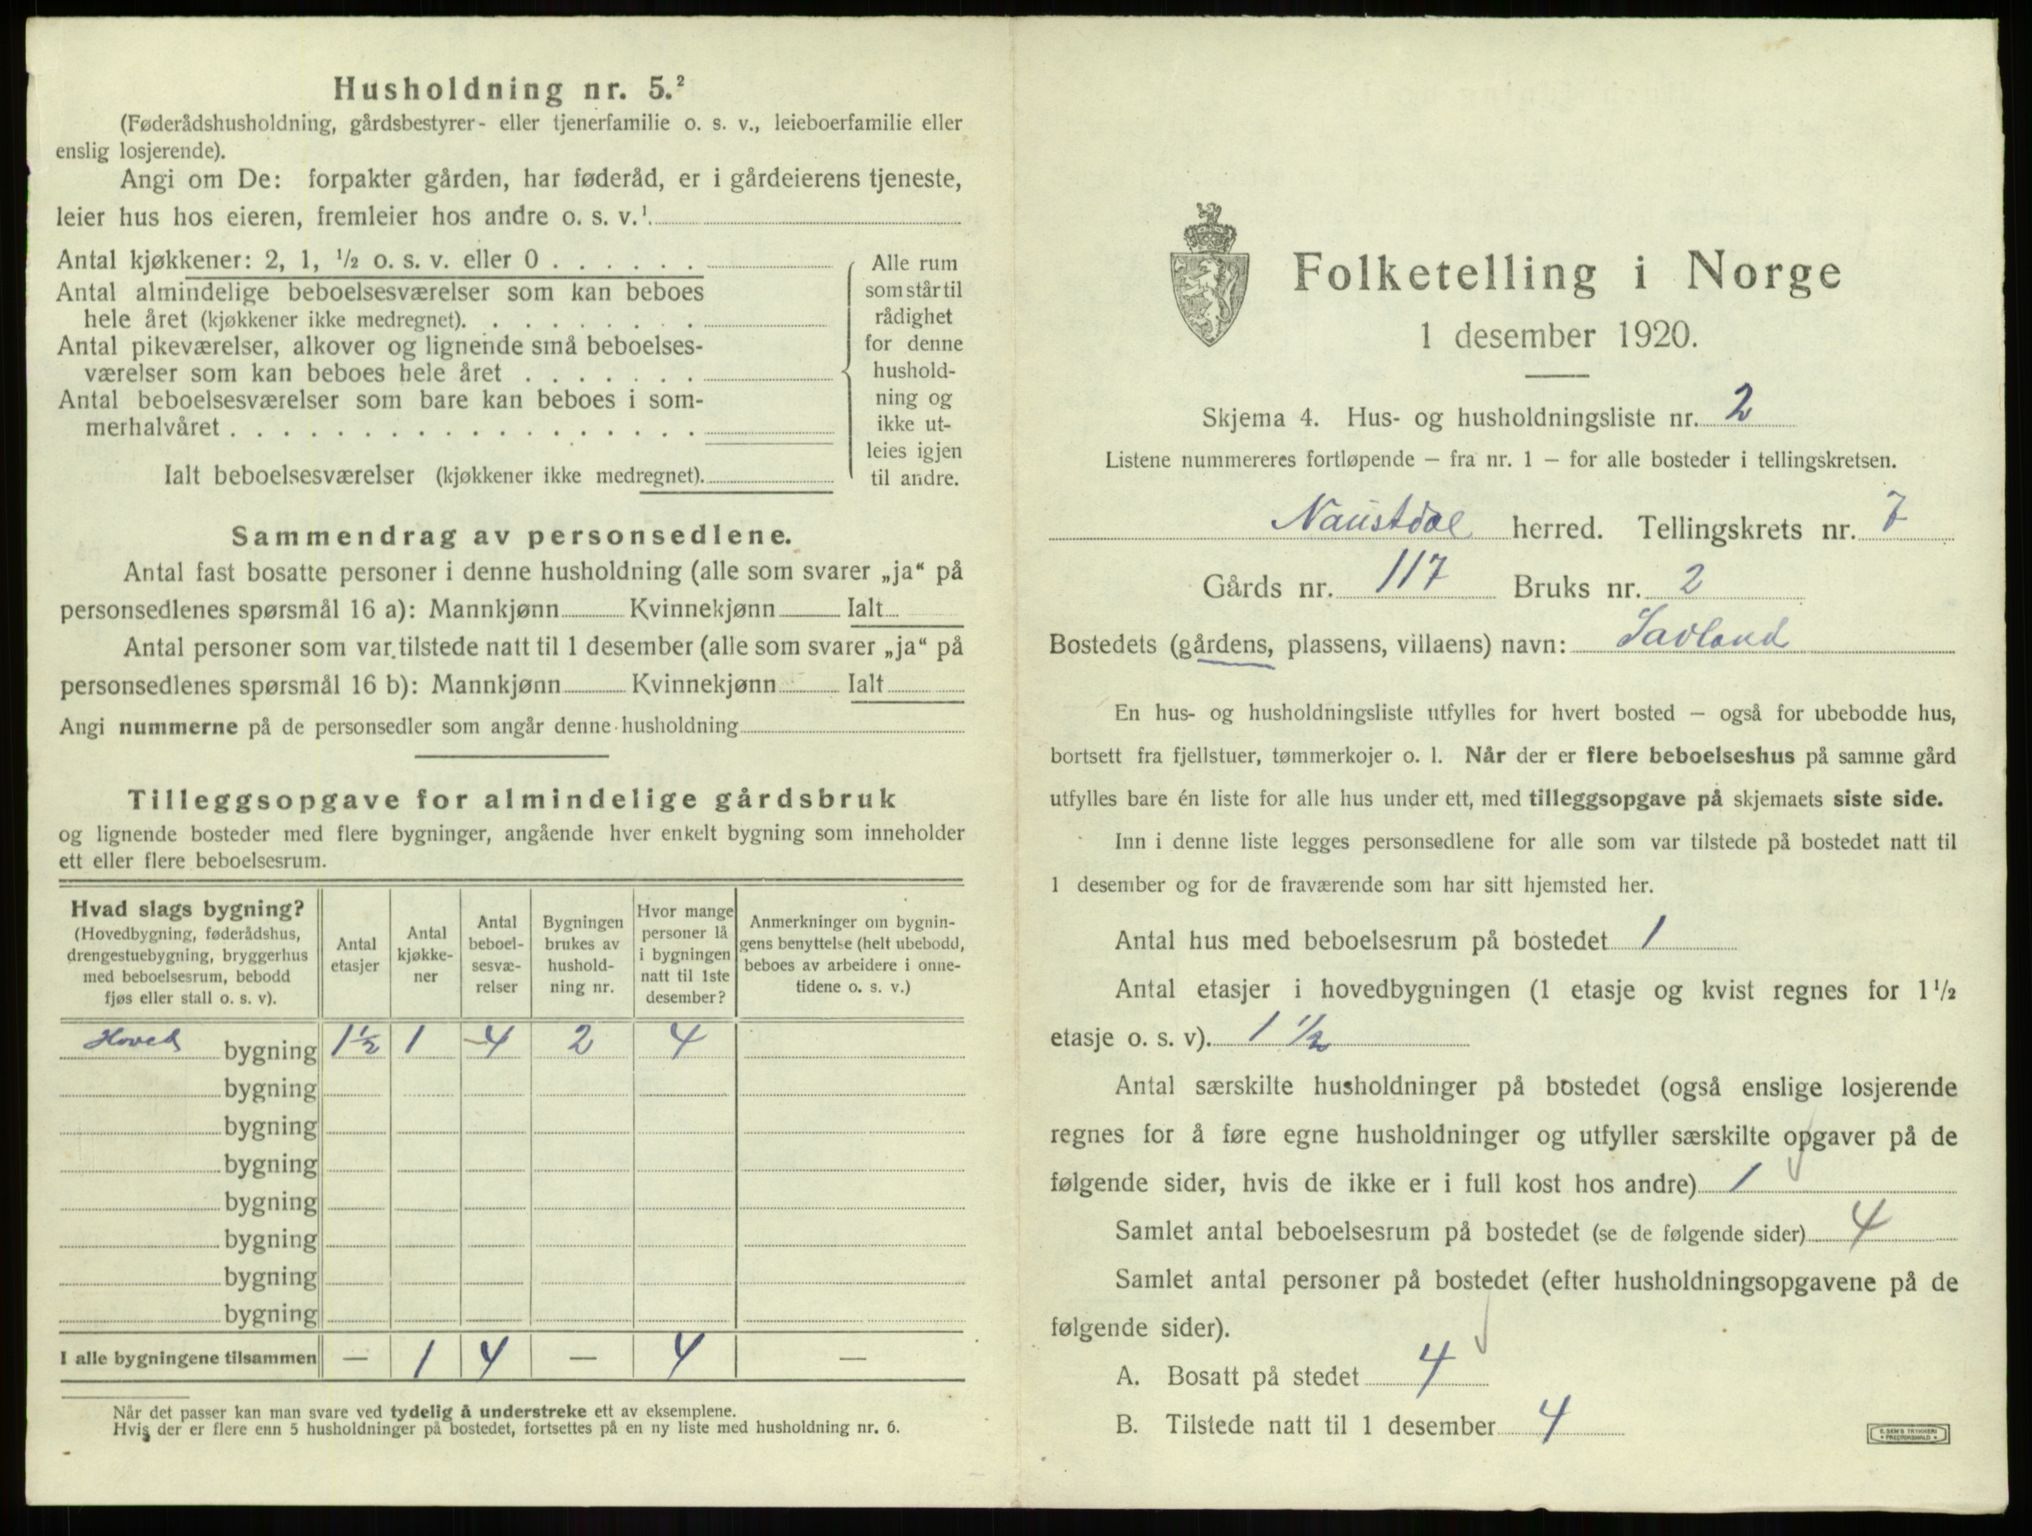 Husholdning nr. 5.²
(Føderådshusholdning, gårdsbestyrer- eller tjenerfamilie o. s. v., leieboerfamilie eller
enslig losjerende).
Angi om De: forpakter gården, har føderåd, er i gårdeierens tjeneste,
leier hus hos eieren, fremleier hos andre o. s. v.¹
Antal kjøkkener: 2, 1, ½ o. s. v. eller 0
Antal almindelige beboelsesværelser som kan beboes
hele året (kjøkkener ikke medregnet).
Antal pikeværelser, alkover og lignende små beboelses-
værelser som kan beboes hele året
Antal beboelsesværelser som bare kan beboes i som-
merhalvåret
Ialt beboelsesværelser (kjøkkener ikke medregnet).
Alle rum
som står til
rådighet
for denne
hushold-
ning og
ikke ut-
leies igjen
til andre.
Sammendrag av personsedlene.
Antal fast bosatte personer i denne husholdning (alle som svarer „ja“ på
personsedlenes spørsmål 16 a): Mannkjønn Kvinnekjønn Ialt
Antal personer som var tilstede natt til 1 desember (alle som svarer „ja“ på
personsedlenes spørsmål 16 b): Mannkjønn Kvinnekjønn Ialt
Angi nummerne på de personsedler som angår denne husholdning
Tilleggsopgave for almindelige gårdsbruk
og lignende bosteder med flere bygninger, angående hver enkelt bygning som inneholder
ett eller flere beboelsesrum.
Hvad slags bygning?
(Hovedbygning, føderådshus,
drengestuebygning, bryggerhus
med beboelsesrum, bebodd
fjøs eller stall o. s. v).
Antal
etasjer
Antal
kjøkke-
ner
Antal
beboel-
sesvæ-
relser
Bygningen
brukes av
hushold-
ning nr.
Hvor mange
personer lå
i bygningen
natt til 1ste
desember?
Anmerkninger om bygnin-
gens benyttelse (helt ubebodd,
beboes av arbeidere i onne-
tidene o. s. v.)
Hoved bygning 1½ 1 4 2 4
bygning
bygning
bygning
bygning
bygning
bygning
bygning
I alle bygningene tilsammen — 1 4 — 4 —
Når det passer kan man svare ved tydelig å understreke ett av eksemplene.
Hvis der er flere enn 5 husholdninger på bostedet, fortsettes på en ny liste med husholdning nr. 6.
Folketelling i Norge
1 desember 1920.
Skjema 4. Hus- og husholdningsliste nr. 2
Listene nummereres fortløpende – fra nr. 1 – for alle bosteder i tellingskretsen.
Naustdal herred. Tellingskrets nr. 7
Gårds nr. 117 Bruks nr. 2
Bostedets (gårdens, plassens, villaens) navn: Savland
En hus- og husholdningsliste utfylles for hvert bosted – også for ubebodde hus,
bortsett fra fjellstuer, tømmerkojer o. l. Når der er flere beboelseshus på samme gård
utfylles bare én liste for alle hus under ett, med tilleggsopgave på skjemaets siste side.
Inn i denne liste legges personsedlene for alle som var tilstede på bostedet natt til
1 desember og for de fraværende som har sitt hjemsted her.
Antal hus med beboelsesrum på bostedet 1
Antal etasjer i hovedbygningen (1 etasje og kvist regnes for 1½
etasje o. s. v). 1½
Antal særskilte husholdninger på bostedet (også enslige losjerende
regnes for å føre egne husholdninger og utfyller særskilte opgaver på de
følgende sider, hvis de ikke er i full kost hos andre) 1
Samlet antal beboelsesrum på bostedet (se de følgende sider) 4
Samlet antal personer på bostedet (efter husholdningsopgavene på de
følgende sider).
A. Bosatt på stedet 4
B. Tilstede natt til 1 desember 4